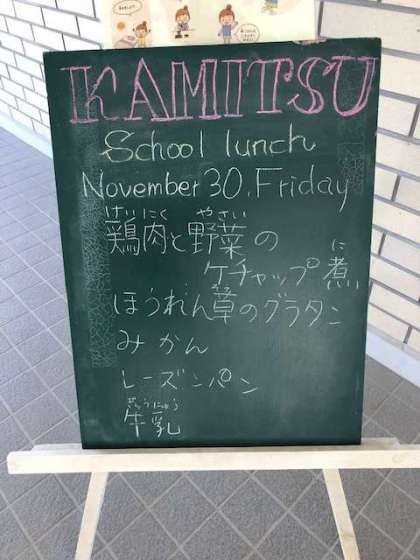 KAMITSU
School lunch
November 30. Friday
けいにく やさい
鶏肉と野菜の
に
ケチャップ煮
ほうれん草のグラタン
みかん
レーズンパン
ぎゅうにゅう
牛乳